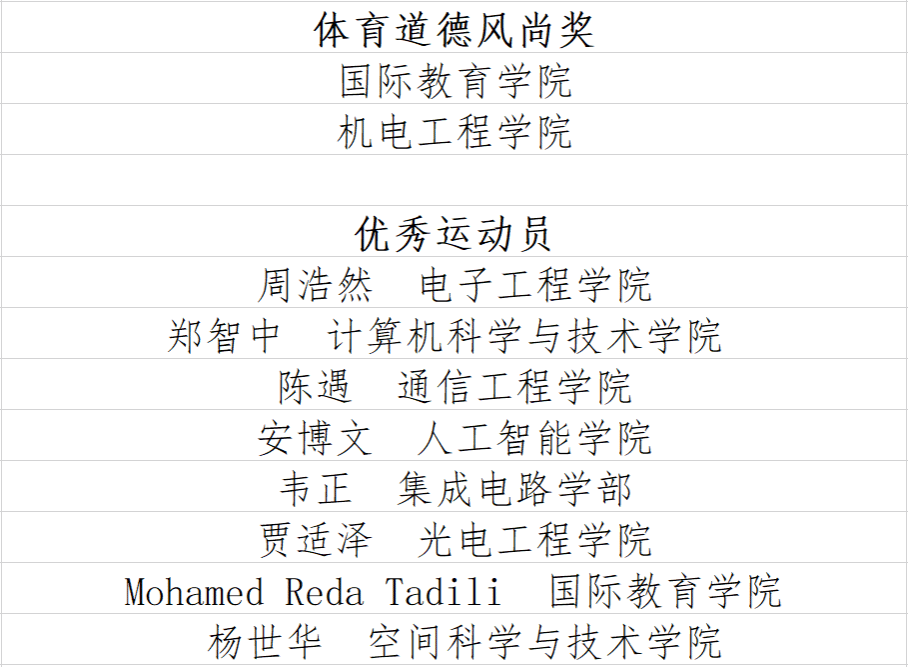 体育道德风尚奖
国际教育学院
机电工程学院
优秀运动员
周浩然 电子工程学院
郑智中 计算机科学与技术学院
陈遇 通信工程学院
安博文 人工智能学院
韦正 集成电路学部
贾适泽 光电工程学院
Mohamed Reda Tadili 国际教育学院
杨世华 空间科学与技术学院